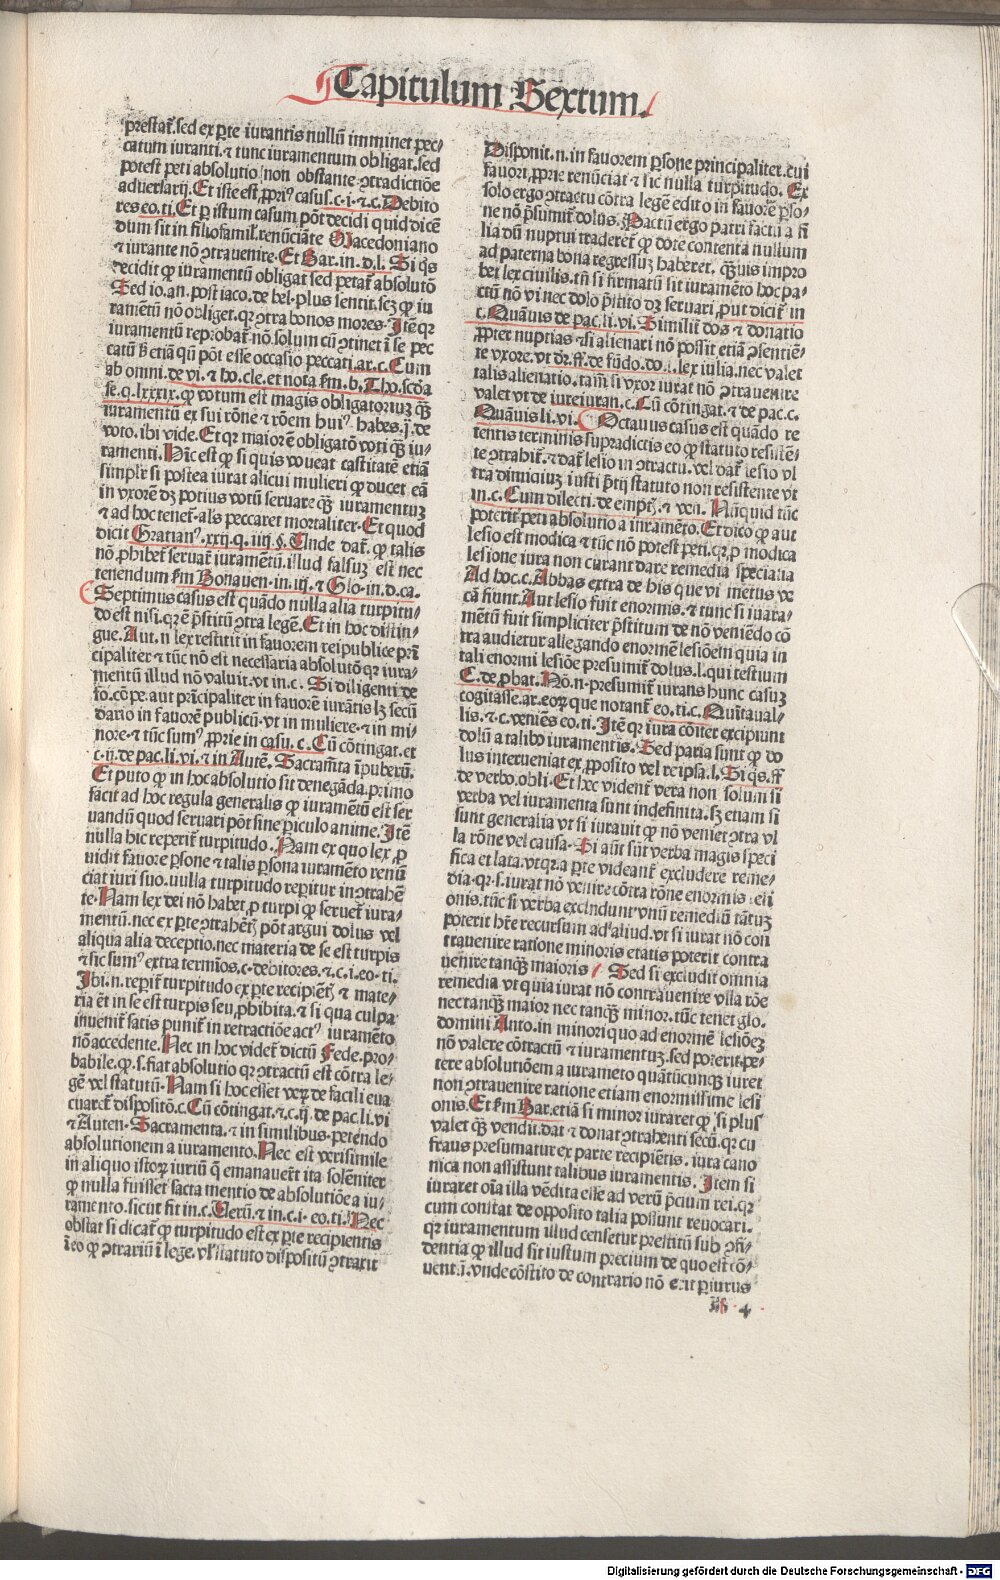 Capitulum Sextum.
prestat̄. sed ex ꝑte iurantis nullū imminet pec-
catum iuranti. ⁊ tunc iuramentum obligat. sed
potest peti absolutio non obstante ꝯtradictiōe
aduersarij. Et iste est ꝓpriꝰ casus. c. i. ⁊ c. Debito
res eo. ti. Et ꝑ istum casum pōt decidi quid dicē
dum sit in filiofamil'. renūciāte Macedoniano
⁊ iurante nō ꝯtrauenire. Et Bar. in. d. l. Si q̇s
decidit ꝙ iuramentū obligat sed petat̄ absolutō
Sed io. an. post iaco. de bel. plus sentit. scꝫ ꝙ iu
ramētū nō obliget. qꝛ ꝯtra bonos mores. Itē qꝛ
iuramentū reprobat̄ nō solum cū ꝯtinet ī se pec
catū s̄ etiā qn̄ pōt esse occasio peccati. ar. c. Cum
ab omni. de vi. ⁊ ho. cle. et nota s̄m. b. Tho. scd̄a
se. q. lxxxix. ꝙ votum est magis obligatoriuꝫ q̄ꝫ
iuramentū ex sui rōne ⁊ rōem huiꝰ habes. j. de
voto. ibi vide. Et qꝛ maior ē obligatō voti q̄ꝫ iu-
ramenti. Hīc est ꝙ si quis voueat castitatē etiā
simplr̄ si postea iurat alicui mulieri ꝙ ducet eā
in vxorē dꝫ potius votū seruare q̄ꝫ iuramentuꝫ
⁊ ad hoc tenet̄. al's peccaret mortaliter. Et quod
dicit Gratianꝰ. xxij. q. iiij. §. Unde dat̄. ꝙ talis
nō ꝓhibet̄ seruare iuramētū. illud falsuꝫ est nec
tenendum s̄m Bonauen. in. iij. ⁊ Glo. in. d. ca.
Septimus casus est quādo nulla alia turpitu-
do est nisi. qꝛ ē p̄stitū ꝯtra legē. Et in hoc distin-
gue. Aut. n̄ lex restitit in fauorem reipublice prī
cipaliter ⁊ tūc nō est necessaria absolutō qꝛ iura-
mentū illud nō valuit. vt in. c. Si diligenti de
fo. cōpe. aut prīcipaliter in fauorē iurātis lꝫ secū
dario in fauorē publicū. vt in muliere. ⁊ in mi-
nore. ⁊ tūc sumꝰ ꝓprie in casu. c. Cū cōtingat. et
c. ij. de pac. li. vi. ⁊ in Autē. Sacramēta īpuberū.
Et puto ꝙ in hoc absolutio sit denegāda. primo
facit ad hoc regula generalis ꝙ iuramētū est ser
uandū quod seruari pōt sine ꝑiculo anime. Itē
nulla hic reperit̄ turpitudo. Nam ex quo lex ꝓ
uidit fauore ꝑsone ⁊ talis ꝑsona iuramēto renū
ciat iuri suo. nulla turpitudo reꝑitur in ꝯtrahē
te. Nam lex dei nō habet ꝓ turpi ꝙ seruet̄ iura-
mentū. nec ex ꝑte ꝯtrahētꝭ pōt argui dolus vel
aliqua alia deceptio. nec materia de se est turpis
⁊ sic sumꝰ extra termīos. c. debitores. ⁊. c. i. eo. ti.
Ibi. n. reꝑit̄ turpitudo ex ꝑte recipiētꝭ ⁊ mate-
ria ēt in se est turpis seu ꝓhibita. ⁊ si qua culpa
inuenit̄ satis punit̄ in retractiōe actꝰ iuramēto
nō accedente. Nec in hoc videt̄ dictū Fede. pro-
babile. ꝙ. s. fiat absolutio qꝛ ꝯtractū est cōtra le-
gē vel statutū. Nam si hoc esset verꝫ de facili eua
cuaret̄ dispositō. c. Cū cōtingat. ⁊ c. ij. de pac. li. vi
⁊ Auten. Sacramenta. ⁊ in similibus. petendo
absolutionem a iuramento. Nec est verisimile
in aliquo istoꝝ iuriū q̄ emanauerūt ita solēniter
ꝙ nulla fuisset facta mentio de absolutiōe a iu-
ramento. sicut fit in. c. Clerū. ⁊ in. c. i. eo. ti. Nec
obstat si dicat̄ ꝙ turpitudo est ex ꝑte recipientis
ī eo ꝙ ꝯtrariū ī lege. vl' statuto dispositū ꝯtraxit
Disponit. n. in fauorem ꝑsone principaliter. cui
fauori. ꝓprie renūciat ⁊ sic nulla turpitudo. Ex
solo ergo ꝯtractu cōtra legē edito in fauorē ꝑso-
ne nō p̄sumit̄ dolus. Pactū ergo patri factū a fi
lia dū nuptui traderet̄ ꝙ dote contenta nullum
ad paterna bona regressuꝫ haberet. q̄ꝫuis impro
bet lex ciuilis. tn̄ si firmatū sit iuramēto hoc pa-
ctū nō vi nec dolo p̄stito dꝫ seruari. put dicit̄ in
c. Quāuis de pac. li. vi. Similit̄ dos ⁊ donatio
ꝓpter nuptias ⁊ si alienari nō possit etiā ꝯsentiē-
te vxore. vt dr̄. ff. de fūdo. do. l. lex iulia. nec valet
talis alienatio. tam̄ si vxor iurat nō ꝯtrauenire
valet vt de iureiuran. c. Cū cōtingat. ⁊ de pac. c.
Quāuis li. vi. Octauus casus est quādo re
tentis terminis supradictis eo ꝙ statuto resistē-
te ꝯtrahit̄. ⁊ dat̄ lesio in ꝯtractu. vel dat̄ lesio vl'
tra dimidiuꝫ iusti p̄tij statuto non resistente vt
in. c. Cum dilecti. de emptꝭ. ⁊ ven. Nūquid tūc
poterit peti absolutio a iuramēto. Et dico ꝙ aut
lesio est modica ⁊ tūc nō potest peti. qꝛ ꝓ modica
lesione iura non curant dare remedia specialia
Ad hoc. c. Abbas extra de his que vi metus ve
cā fiunt. Aut lesio fuit enormis. ⁊ tunc si iura-
mētū fuit simpliciter p̄stitum de nō veniēdo cō
tra audietur allegando enormē lesiōem quia in
tali enormi lesiōe presumit̄ dolus. l. qui testium
C. de ꝓbat. Nō. n. presumit̄ iurans hunc casuꝫ
cogitasse. ar. eoꝝ que notant̄ eo. ti. c. Quītaual-
lis. ⁊. c. veniēs eo. ti. Itē qꝛ iura cōiter excipiunt
dolū a talibꝰ iuramentis. Sed paria sunt ꝙ do
lus interueniat ex ꝓposito vel re ipsa. l. Si q̇s. ff
de verbo. obli. Et hec vident̄ vera non solum si
verba vel iuramenta sunt indefinita. sꝫ etiam si
sunt generalia vt si iurauit ꝙ nō veniet ꝯtra vl'
la rōne vel causa. Si aūt sūt verba magis speci
fica et lata. vt qꝛ a ꝑte videant̄ excludere reme-
dia. qꝛ. s. iurat nō venire cōtra rōne enormis lesi
onis. tūc si verba excludunt vnū remediū tātuꝫ
poterit hr̄e recursum ad aliud. vt si iurat nō con
trauenire ratione minoris etatis poterit contra
uenire tanq̄ꝫ maioris Sed si excludit omnia
remedia vt quia iurat nō contrauenire vlla rōe
nec tanq̄ꝫ maior nec tanq̄ꝫ minor. tūc tenet glo.
domini Anto. in minori quo ad enormē lesiōeꝫ
nō valere cōtractū ⁊ iuramentuꝫ. sed poterit. pe-
tere absolutiōem a iurameto quātūcunqꝫ iuret
non ꝯtrauenire ratione etiam enormissime lesi
onis. Et s̄m Bar. etiā si minor iuraret ꝙ si plus
valet q̄ꝫ vendit. dat ⁊ donat ꝯtrahenti secū. qꝛ cū
fraus presumatur ex parte recipiētis. iura cano
nica non assistunt talibus iuramentis. Item si
iuraret oīa illa vēdita esse ad verū p̄cium rei. qꝛ
cum constat de opposito talia possunt reuocari.
qꝛ iuramentum illud censetur prestitū sub ꝯfi-
dentia ꝙ illud sit iustum precium de quo est cō-
uent. ī. vnde cōstito de contrario nō erit ꝑiurus